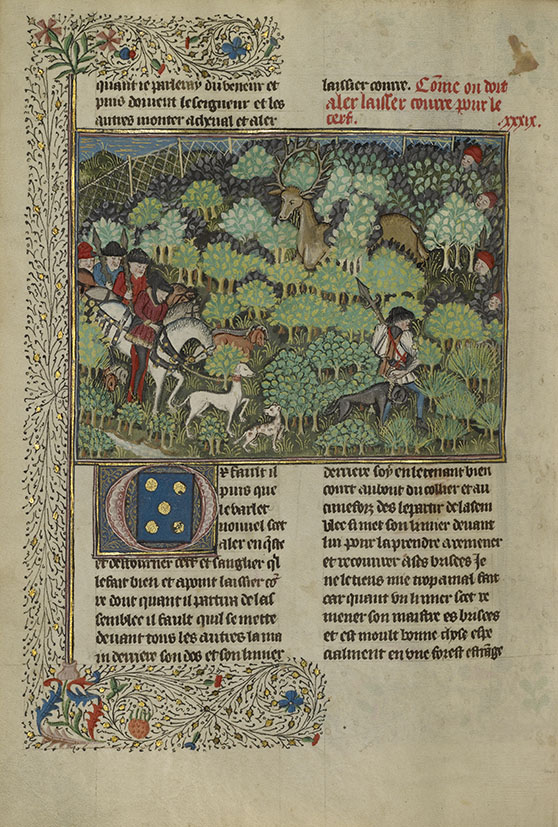 quant ie parleray du veneur et
puis doiuent le seigneur et les
autres monter a cheual et aler
laissier courre. Cõme on doit
aler laisser courre pour le
cerf. .xxxix.
Or fault il
puis que
le varlet
nouuel scet
aler en q̃ste
et destourner cerf et sanglier q̃l
le fait bien et apoint laissier
re dont quant il partira de las
semblee il fault quil se mette
deuant tous les autres la ma
in derriere son dos et son limier
derriere soy en le tenant bien
court au bout du collier et au
des le partir de lasem
blee sa met son limier deuant
lui pour la prendre a remener
et recouurer a ses brisees Je
ne le tiens mie trop a mal fait
car quant vn limier scet re
mener son maistre es brisees
et est moult bonne chose espe
cialment en vne forest estrãge